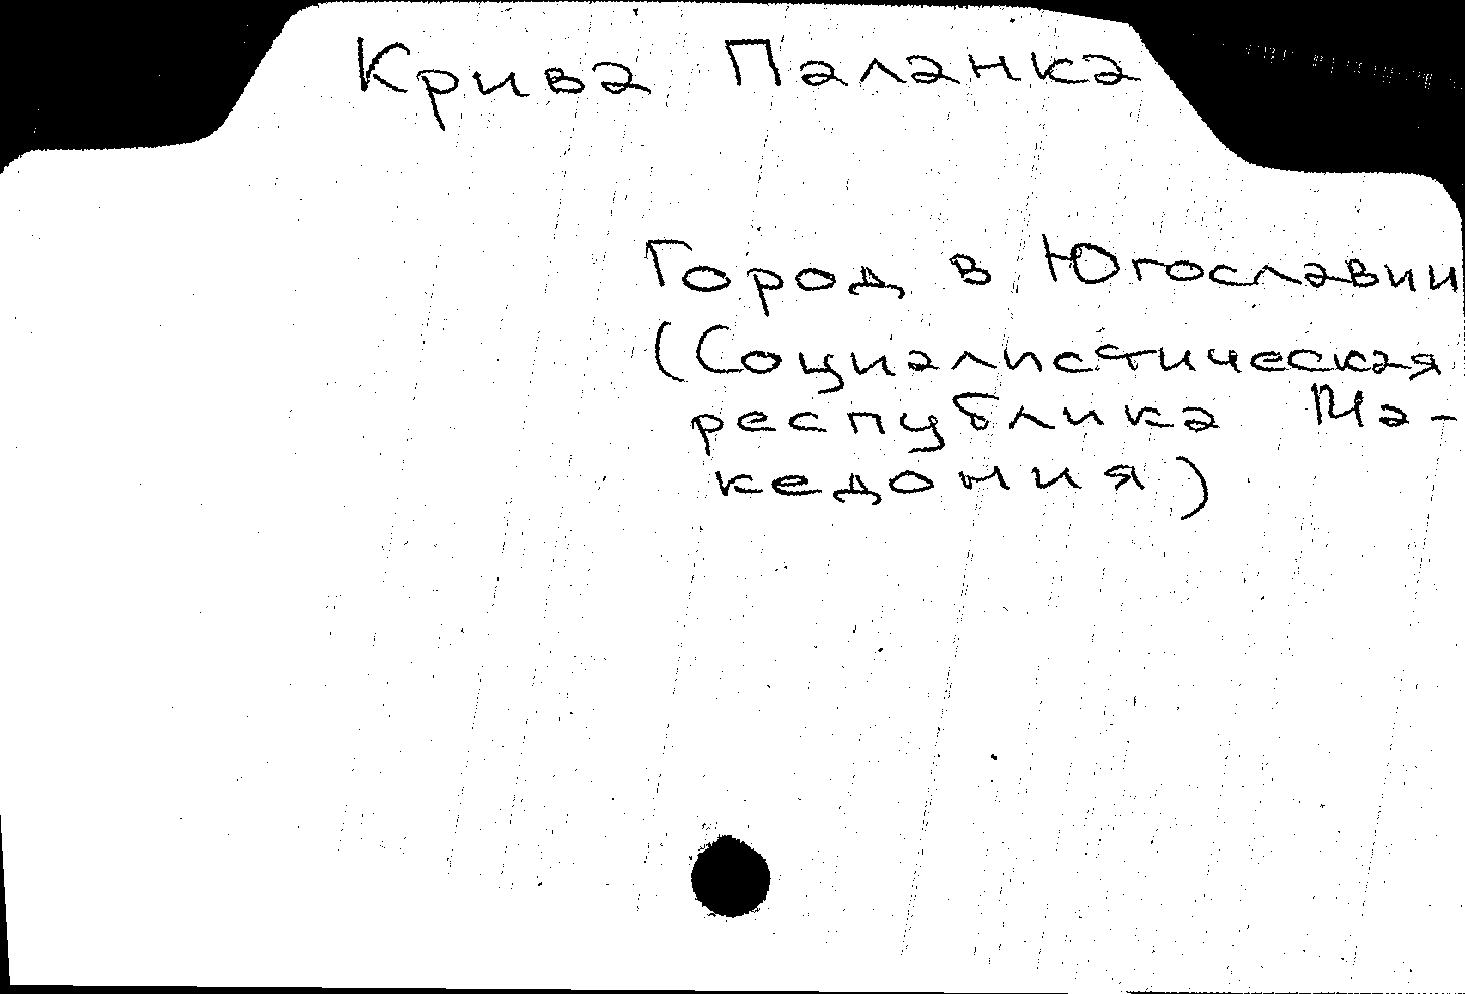 Крива Паланка
Город в Югославии
(Социалистическая
республика Ма-
кедония)